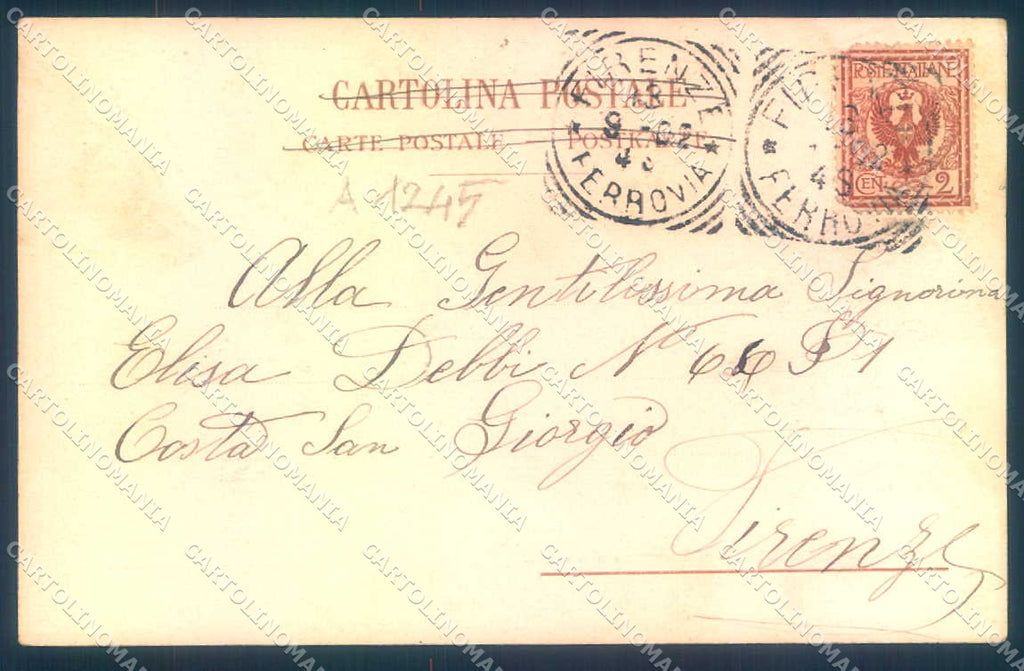 CARTOLINA POSTALE
CARTE POSTALE — POSTKARTE
A 1245
FIRENZE
FERROVIA
POSTE ITALIANE
CEN. 2
FERROVIA
Alla Gentilissima Signorina
Elisa Debbi Nº 66 P 1
Costa San Giorgio
Firenze
CARTOLINOMANIA